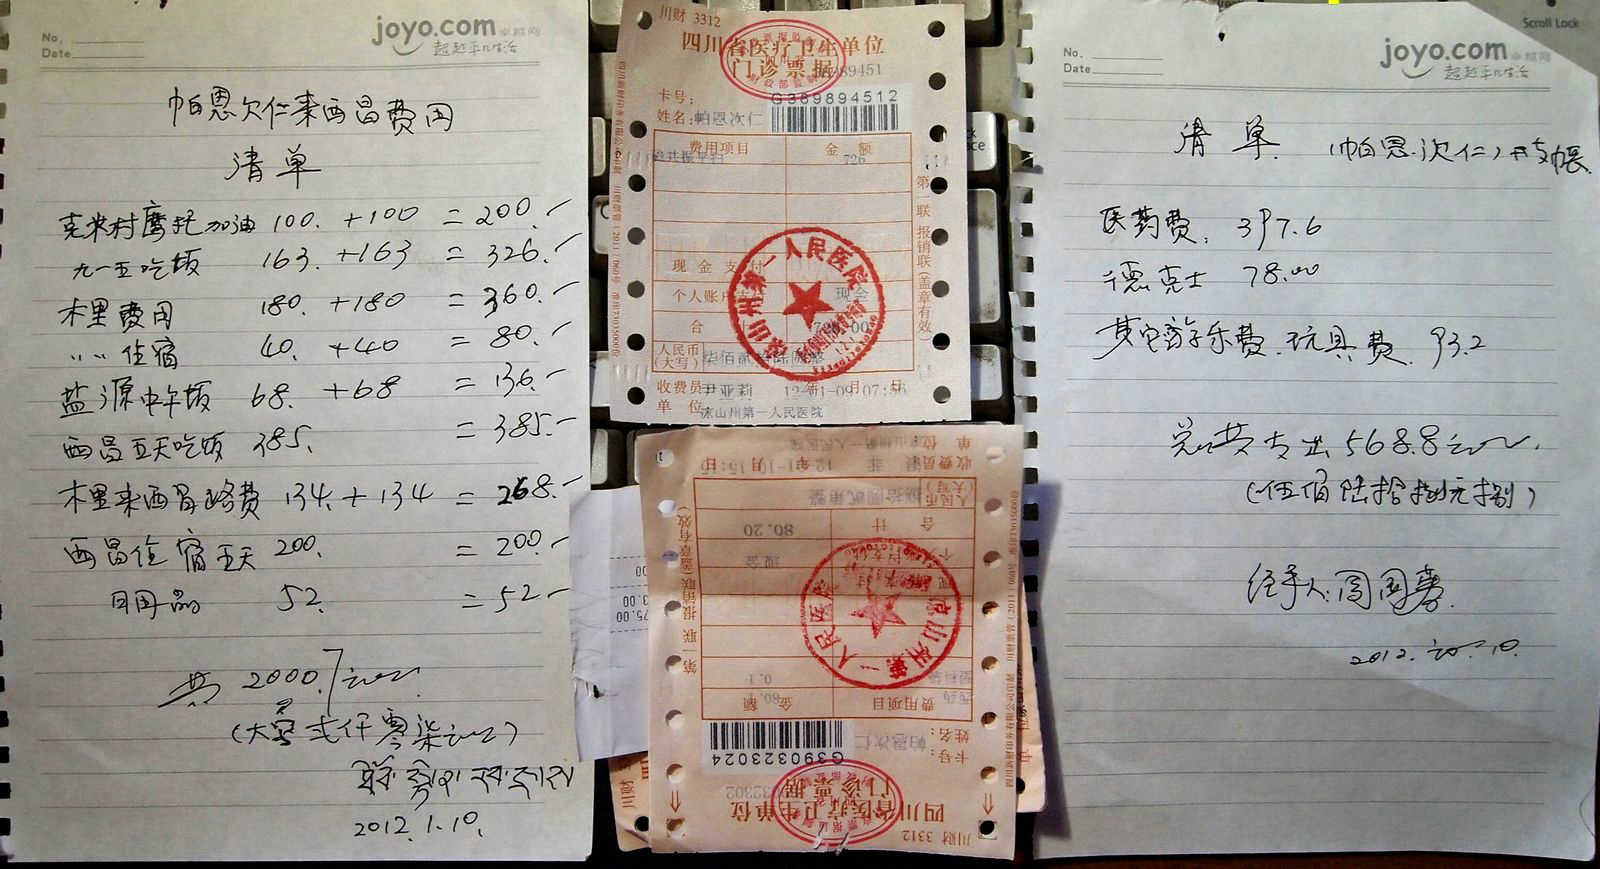 No.
Date
joyo.com 卓越网
超越平凡生活
帕恩次仁来西昌费用
清单
克米村摩托加油 100. +100 = 200.-
九一五吃饭 163. +163 = 326.-
木里费用 180. +180 = 360.-
〃 〃 住宿 40. +40 = 80.-
盐源中午饭 68. +68 = 136.-
西昌五天吃饭 385. = 385.-
木里来西昌路费 134. + 134 = 268.-
西昌住宿五天 200. = 200.-
日用品 52. = 52-
共 2007.元
(大写 弍仟零柒元)
2012.1.10.
川财 3312
四川省医疗卫生单位
门诊票据
卡号: G369894512
姓名: 帕恩次仁
费用项目 金 额
726
现金支付
现金
合
726.00
人民币
(大写)
收费员 尹亚莉 12-01-09 07:56
单 位 凉山州第一人民医院
第一联 报销联(盖章有效)
凉山州第一人民医院
四川省医疗卫生单位
门诊票据
川财 3312
卡号: G390323024
姓名: 帕恩次仁
费用项目 金 额
西药 80.1
0.1
现金
合 计 80.20
人民币
(大写) 捌拾圆贰角整
收费员
单 位 凉山州第一人民医院
第一联 报销联(盖章有效)
凉山州第一人民医院
Scroll Lock
No.
Date
joyo.com 卓越网
超越平凡生活
清单 (帕恩次仁)开支帐
医药费: 397.6
德克士 78.00
其它游乐费.玩具费. 93.2
总共支出 568.8元.
(伍佰陆拾捌元捌)
经手人:
2012.元.10.